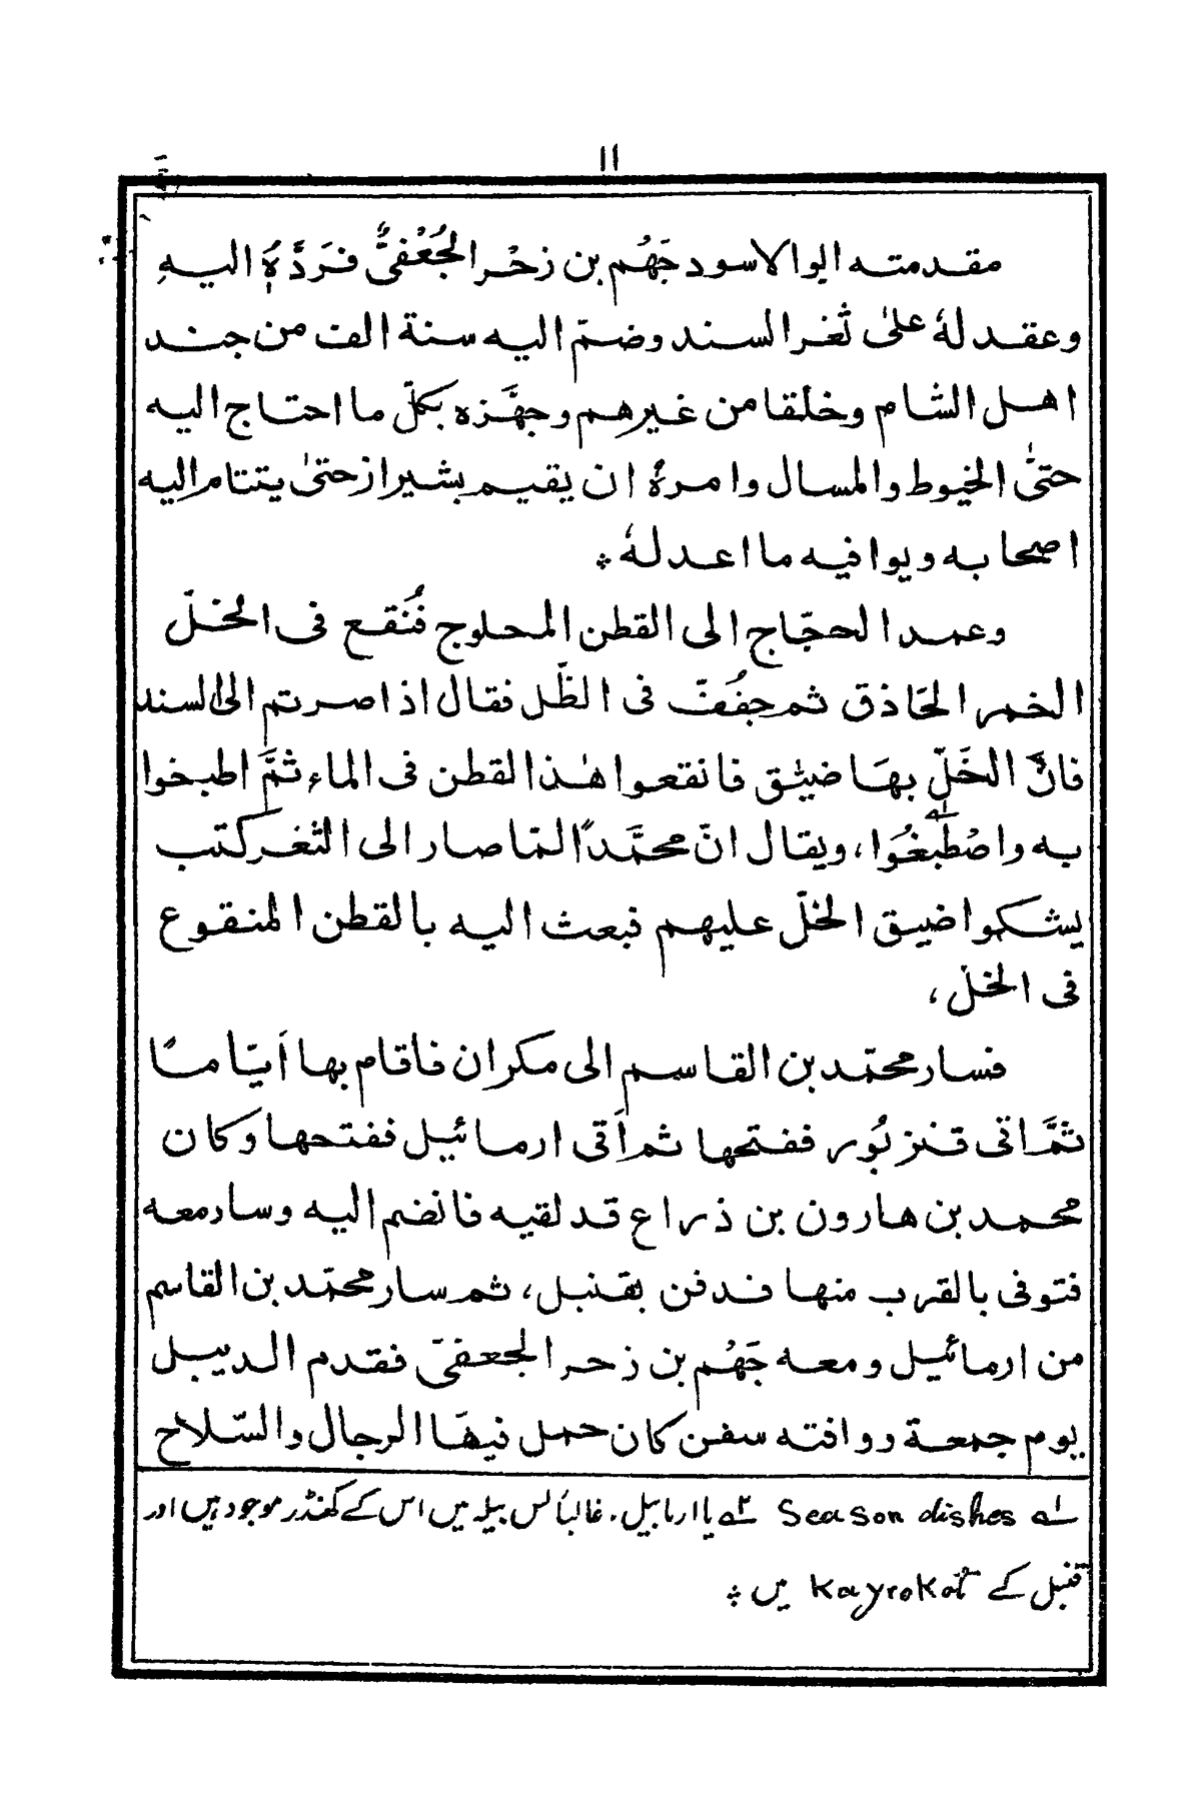 ۱۱
مقدمته ابوالاسود جَهُم بن زحْر الجُعْفىُّ فَرَدَّهٗ اليهِ
وعقد لهٗ علىٰ ثغر السند وضمّ اليه ستة الف من جند
اهل الشام وخلقا من غيرهم وجهَّزه بكلّ ما احتاج اليه
حتىّٰ الخيوط والمسال وامرهٗ ان يقيم بشيراز حتىٰ يتتام اليه
اصحابه ويوافيه ما اعد لهٗ ؞
وعمد الحجّاج الى القطن المحلوج فُنَقع فى الخلّ
الخمر الحَاذق ثم جفُفّف فى الظّل فقال اذا صرتم الى السند
فانَّ الخَلّ بهَا ضيّق فانقعوا هٰذا القطن فى الماء ثمَّ اطبخوا
به واصْطَبغُوا، ويقال انّ محمَّدًا لمّا صار الى الثغر كتب
يشكوا ضيق الخلّ عليهم فبعث اليه بالقطن المنقوع
فى الخل ،
فسار محمّد بن القاسم الى مكران فاقام بها أيّامًا
ثمَّ اتى قنزبُور ففتحها ثم أتى ارمائيل ففتحها وكان
محمد بن هارون بن ذراع قد لقيه فانضم اليه وسار معه
فتوفى بالقرب منها فدفن بقنبل، ثم سار محمّد بن القاسم
من ارمائيل ومعه جَهُم بن زحر الجعفىّ فقدم الديبل
يوم جمعة ووافته سفن كان حمل فيهَا الرجال والسّلاح
۱ے Season dishes ۲ے یا ارمابیل، غالباً لس بیلہ میں اس کے کھنڈر موجود ہیں اور
قنبل کے Kayrokot میں ؞